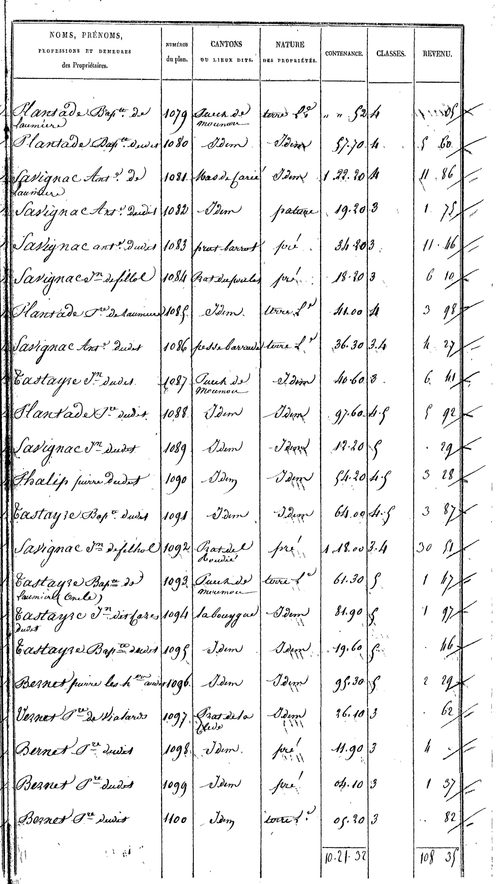 NOMS, PRÉNOMS, PROFESSIONS ET DEMEURES des Propriétaires. NUMÉROS du plan. CANTONS OU LIEUX DITS. NATURE DES PROPRIÉTÉS. CONTENANCE. CLASSES. REVENU.
Plantade Bapte de laumiere 1079 Puech de mounou terre Lde " " 52 4 05
Plantade Bapte dudit 1080 Idem Idem 57.70 4 5 60
Savignac Ant. de laumiere 1081 mas de farié Idem 1.22.20 4 11 86
Savignac Ant. dudit 1082 Idem pature 19.20 3 1 75
Savignac ant. dudit 1083 prat barrat pré 34.20 3 11 46
Savignac Jn defilhol 1084 pré 18.20 3 6 10
Plantade Pre de laumiere 1085 Idem terre Lde 41.00 4 3 98
Savignac Ant. dudit 1086 pesse barrade terre Lde 36.30 3.4 4 27
Tastayre Jn dudit 1087 Puech de mounou Idem 40.60 3 6 41
Plantade dudit 1088 Idem Idem 97.60 4.5 5 92
Savignac Jn dudit 1089 Idem Idem 12.20 5 . 29
Phalip pierre dudit 1090 Idem Idem 54.20 4.5 3 28
Tastayre Bapte dudit 1091 Idem Idem 64.00 4.5 3 87
Savignac Jn defilhol 1092 Prat del pré 1.18.00 3.4 30 51
Tastayre Bapte de laumiere (oncle) 1093 Puech de mounou terre Lde 61.30 5 1 47
Tastayre Jn dudit 1094 labouygue Idem 81.90 5 1 97
Tastayre Bapte dudit 1095 Idem Idem 19.60 5 . 46
Bernet pierre les 1096 Idem Idem 95.30 5 2 29
Vernet Pre de 1097 Prat de la Idem 26.10 3 . 62
Bernet Pre dudit 1098 Idem pré 11.90 3 4 .
Bernet Pre dudit 1099 Idem pré 04.10 3 1 37
Bernet Pre dudit 1100 Idem terre Lde 05.20 3 82
10.21.32 108 35